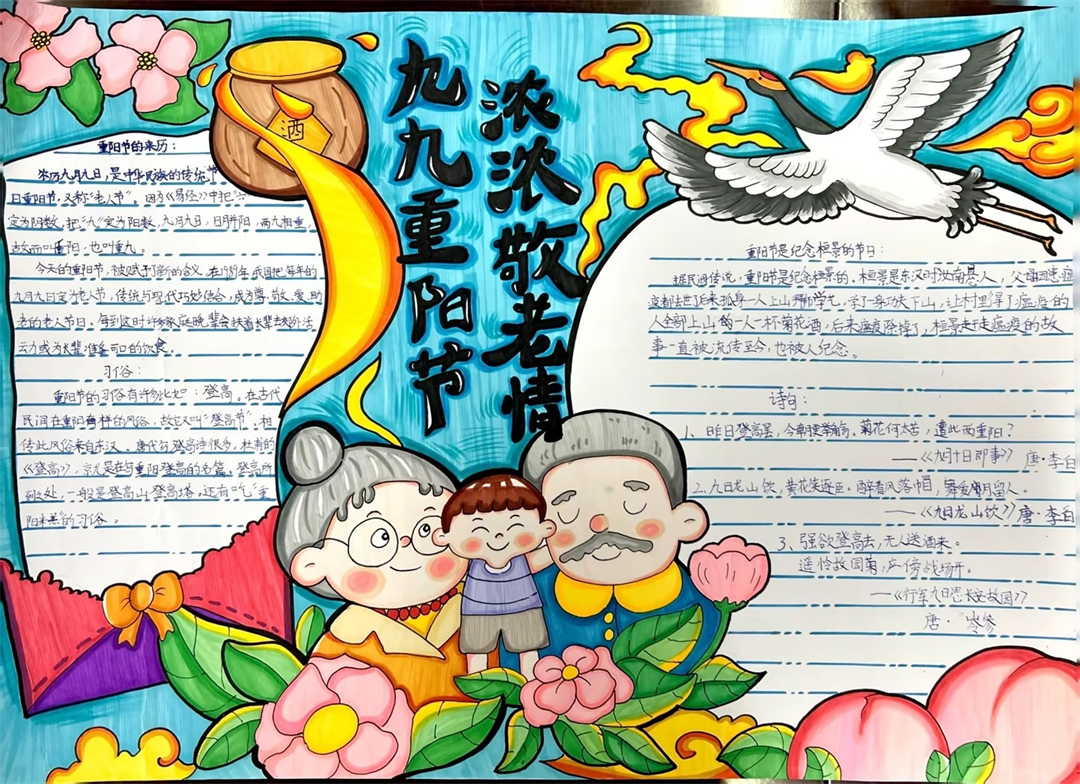 九九重阳节
浓浓敬老情
酒
重阳节的来历：
农历九月九日，是中华民族的传统节
日重阳节，又称“老人节”。因为《易经》中把“六”
定为阴数，把“九”定为阳数，九月九日，日月并阳，两九相重，
故而叫重阳，也叫重九。
今天的重阳节，被赋予了新的含义，在1989年我国把每年的
九月九日定为老人节，传统与现代巧妙结合，成为尊、敬、爱、助
老的老人节日。每到这时许多家庭晚辈会扶着长辈去郊外活
云力或为长辈准备可口的饮食。
习俗：
重阳节的习俗有许多比如：登高。在古代
民间在重阳有样的风俗，故它又叫“登高节”，相
传此风俗来自东汉。唐代的登高诗很多，杜甫的
《登高》，就是在写重阳登高的名篇。登高所
到之处，一般是登高山、登高塔，还有“吃”重
阳糕”的习俗。
重阳节是纪念桓景的节日：
据民间传说，重阳节是纪念桓景的，桓景是东汉时汝南县人，父母因患瘟
疫都去世了后来孤身一人上山拜师学艺，学了身功夫下山，让村里得了瘟疫的
人全部上山每一人一杯菊花酒，后来瘟疫除掉了，桓景赶走瘟疫的故
事一直被流传至今，也被人纪念。
诗句：
1、昨日登高罢，今朝更举觞，菊花何太苦，遭此两重阳？
——《九月十日即事》 唐·李白
2、九日龙山饮，黄花笑逐臣。醉看风落帽，舞爱月留人。
——《九日龙山饮》唐·李白
3、强欲登高去，无人送酒来。
遥怜故园菊，应傍战场开。
——《行军九日思长安故园》
唐·岑参